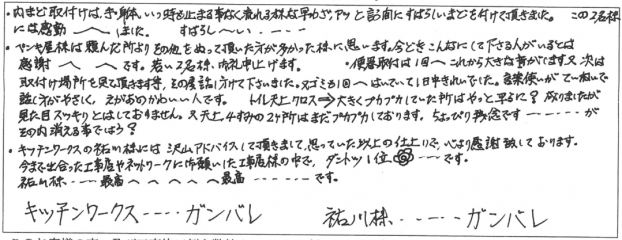 ・内まど取付けは、き、身体、いっ時も止まる事なく流れる様な早わざ、アッと言う間にすばらしいまどを付けて頂きました。この2名様
には感動〜〜〜ました。すばらし〜い.---
・ペンキ屋様は頼んだ所よりその他をぬって頂いた方が多かった様に思います。今どきこんなにして下さる人がいるとは
感謝〜〜です。若い2名様、御礼申上げます。・便器取付は1回へこれから大きな音がでます又次は
取付け場所を見て頂きます等、その度話しかけて下さいました。又ゴミも1回へはいていて1日中きれいでした。言葉使いがていねいで
話し方がやさしく、えがおのかわいい人です。トイレ天上クロス⇒大きくプカプカしていた所はやっと平らに?成りましたが
見た目スッキリとはしておりません。又天上4すみの2ヶ所はまだプカプカしております。ちょっぴり残念です-----が
その内消える事でしょう?
・キッチンワークスの祐川様には沢山アドバイスして頂きまして、思っていた以上の仕上りで、心より感謝致しております。
今まで出合った工事店やネットワークにお願いした工事店様の中で、ダントツ1位---です。
祐川様----最高へへへへ最高-----です。
キッチンワークス-----ガンバレ 祐川様.-----ガンバレ